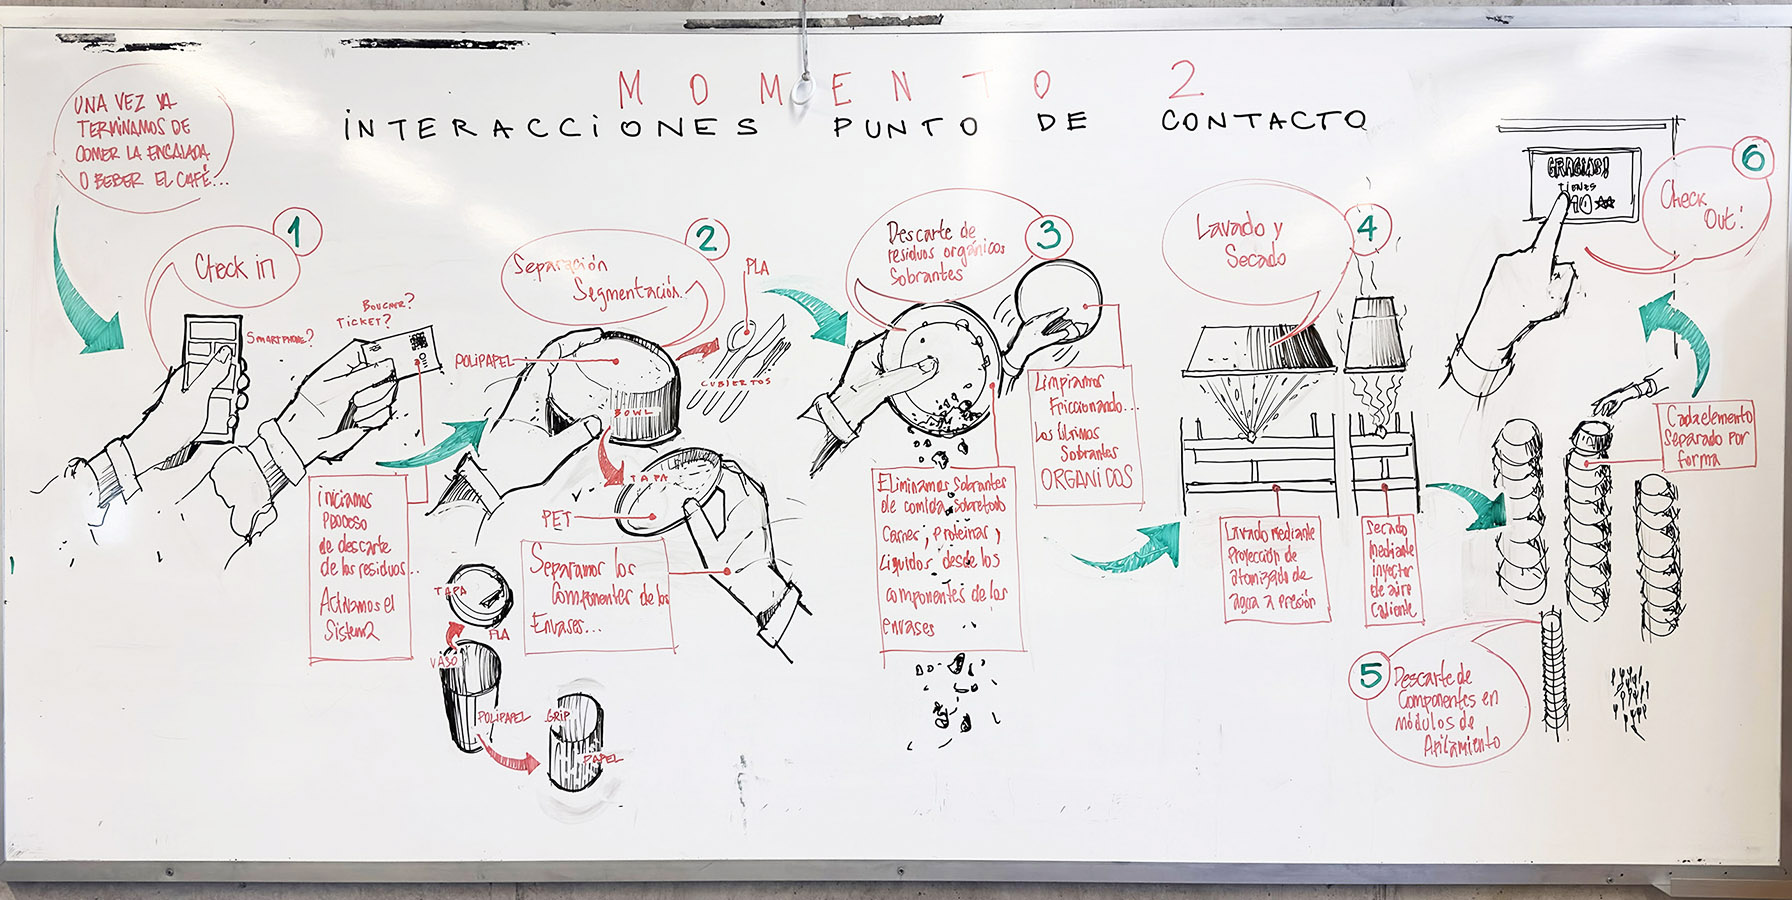 MOMENTO 2
INTERACCIONES PUNTO DE CONTACTO
UNA VEZ YA
TERMINAMOS DE
COMER LA ENSALADA
O BEBER EL CAFÉ...
1
Check in
SMARTPHONE?
BOUCHER?
TICKET?
iniciamos
proceso
de descarte
de los residuos...
Activamos el
Sistema
2
Separación
Segmentación...
POLIPAPEL
BOWL
PLA
CUBIERTOS
TAPA
PET
Separamos los
Componentes de los
Envases...
TAPA
PLA
VASO
POLIPAPEL
GRIP
PAPEL
3
Descarte de
residuos orgánicos
Sobrantes
Limpiamos
Friccionando...
Los últimos
Sobrantes
ORGANICOS
Eliminamos sobrantes
de comida, sobretodo
Carnes, proteinas y
Liquidos, desde los
componentes de los
envases
4
Lavado y
Secado
Lavado mediante
Proyección de
atomizado de
agua a presión
Secado
mediante
inyector
de aire
Caliente
5
Descarte de
Componentes en
módulos de
Apilamiento
Cada elemento
Separado por
forma
6
Check
Out!
GRACIAS!
TIENES
10